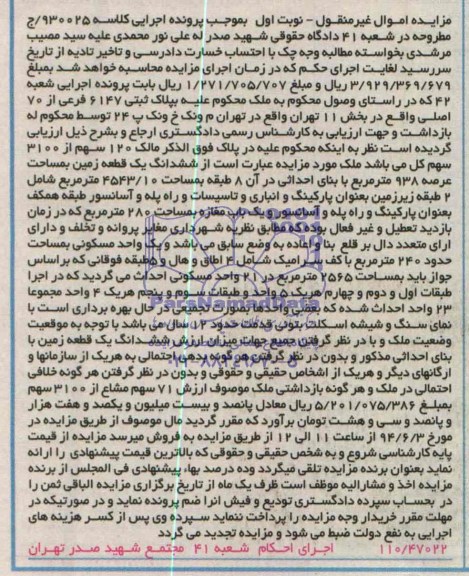 مزایـده امـوال غیرمنقـول - نوبـت اول بموجـب پرونده اجرایی کلاسـه ۹۳۰۰۲۵/ج
مطروحه در شعبه ۴۱ دادگاه حقوقی شهید صدر له علی نور محمدی علیه سید مصیب
مرشـدی بخواسـته مطالبه وجه چک با احتساب خسارت دادرسـی و تاخیر تادیه از تاریخ
سررسـید لغایـت اجرای حکـم که در زمـان اجرای مزایده محاسـبه خواهد شـد بمبلغ
۳/۹۲۹/۳۶۹/۶۷۹ ریال و مبلغ ۱/۲۷۱/۷۰۵/۷۰۷ ریال بابت پرونده اجرایی شعبه
۴۲ که در راسـتای وصول محکوم به ملک محکوم علیـه بپلاک ثبتی ۶۱۴۷ فرعی از ۷۰
اصلـی واقـع در بخش ۱۱ تهران واقع در تهران م ونک خ ونک پ ۲۴ توسـط محکوم له
بازداشـت و جهت ارزیابی به کارشـناس رسمی دادگستری ارجاع و بشرح ذیل ارزیابی
گردیده است نظر به اینکه محکوم علیه در پلاک فوق الذکر مالک ۱۲۰ سهم از ۳۱۰۰
سهم کل می باشد ملک مورد مزایده عبارت است از ششدانگ یک قطعه زمین بمساحت
عرصه ۹۳۸ مترمربع با بنای احداثی در آن ۸ طبقه بمساحت ۴۵۴۳/۱۰ مترمربع شامل
۲ طبقه زیرزمین بعنوان پارکینگ و انباری و تاسیسات و راه پله و آسانسور طبقه همکف
بعنوان پارکینگ و راه پله و آسانسور و یک باب مغازه بمساحت ۲۸۰ مترمربع که در زمان
بازدید تعطیل و غیر فعال بوده که مطابق نظریه شـهرداری مغایر پروانه و تخلف و دارای
ارای متعدد دال بر قلع بنا و اعاده به وضع سابق می باشد و یک واحد مسکونی بمساحت
حدود ۲۴۰ مترمربع با کف سـرامیک شـامل ۴ اطاق و هال و ۵طبقه فوقانی که براساس
جواز باید بمسـاحت ۲۵۶۵ مترمربع در ۲۱ واحد مسـکونی احداث می گردید که در اجرا
طبقات اول و دوم و چهارم هریک ۵ واحد و طبقات سوم و پنجم هریک ۴ واحد مجموعا
۲۳ واحد احداث شده که بعضی واحدها بصورت تجمیعی در حال بهره برداری است با
نمای سـنگ و شیشه اسـکلت بتونی قدمت حدود ۱۲ سال می باشد با توجه به موقعیت
وضعیت ملک و با در نظر گرفتن جمیع جهات میزان ارزش ششدانگ یک قطعه زمین با
بنای احداثی مذکور و بدون در نظر گرفتن هر گونه بدهی احتمالی به هریک از سازمانها و
ارگانهای دیگر و هریک از اشخاص حقیقی و حقوقی و بدون در نظر گرفتن هر گونه خلافی
احتمالی در ملک و هر گونه بازداشتی ملک موصوف ارزش ۷۱ سهم مشاع از ۳۱۰۰ سهم
بمبلـغ ۵/۲۰۱/۰۷۵/۳۸۶ ریال معادل پانصد و بیسـت میلیون و یکصد و هفت هزار
و پانصد و سـی و هشـت تومان برآورد که مقرر گردید مال موصوف از طریق مزایده در
مورخ ۹۴/۶/۳ از ساعت ۱۱ الی ۱۲ از طریق مزایده به فروش میرسد مزایده از قیمت
پایه کارشناسی شروع و به شخص حقیقی و حقوقی که بالاترین قیمت پیشنهادی را ارائه
نماید بعنوان برنده مزایده تلقی میگردد وده درصد بهاء پیشنهادی فی المجلس از برنده
مزایده اخذ و مشارالیه موظف است ظرف یک ماه از تاریخ برگزاری مزایده الباقی ثمن را
در بحسـاب سپرده دادگستری تودیع و فیش انرا ضم پرونده نماید و در صورتیکه در
مهلت مقرر خریدار وجه مزایده را پرداخت ننماید سـپرده وی پس از کسـر هزینه های
اجرایی به نفع دولت ضبط می شود و مزایده تجدید می گردد
۱۱۰/۴۷۰۲۲ اجرای احکام شعبه ۴۱ مجتمع شهید صدر تهران